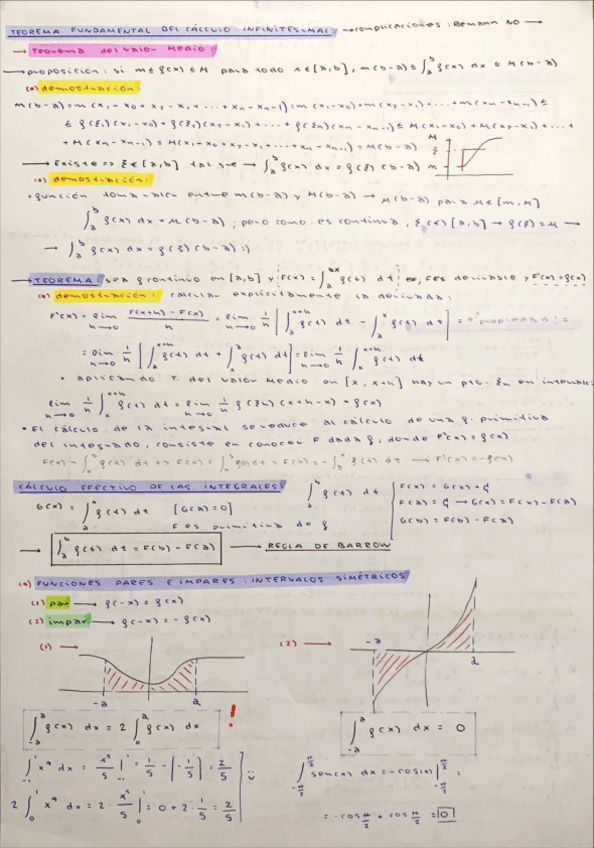 TEOREMA FUNDAMENTAL DEL CÁLCULO INFINITESIMAL: → complicaciones: Riemann NO →
→ Teorema del valor medio:
→ proposición: si m ≤ f(x) ≤ M para todo x ∈ [a,b], m(b-a) ≤ ∫_a^b f(x) dx ≤ M(b-a)
(*) demostración:
m(b-a) = m(x₁-x₀+x₂-x₁+...+xₙ-xₙ₋₁) = m(x₁-x₀)+m(x₂-x₁)+...+m(xₙ-xₙ₋₁) ≤
≤ f(ξ₁)(x₁-x₀)+f(ξ₂)(x₂-x₁)+...+f(ξₙ)(xₙ-xₙ₋₁) ≤ M(x₁-x₀)+M(x₂-x₁)+...+
+M(xₙ-xₙ₋₁) = M(x₁-x₀+x₂-x₁+...+xₙ-xₙ₋₁) = M(b-a)
→ Existe => ξ ∈ [a,b] tal que → ∫_a^b f(x) dx = f(ξ)(b-a)
M
ξ
m
(*) demostración:
• función toma valor entre m(b-a) y M(b-a) → μ(b-a) para μ ∈ [m,M]
∫_a^b f(x) dx = μ(b-a) ; pero como es continua, ξ ∈ [a,b] → f(ξ) = μ →
→ ∫_a^b f(x) dx = f(ξ)(b-a) :)
→ TEOREMA: sea f continuo en [a,b] y F(x) = ∫_a^x f(t) dt , F es derivable y F'(x) = f(x)
(*) demostración: calcular explícitamente la derivada:
F'(x) = lim_{h→0} F(x+h)-F(x)/h = lim_{h→0} 1/h [∫_a^{x+h} f(t) dt - ∫_a^x f(t) dt] = + propiedad =
= lim_{h→0} 1/h [∫_a^{x+h} f(t) dt + ∫_x^a f(t) dt] = lim_{h→0} 1/h ∫_x^{x+h} f(t) dt
• aplicando T. del valor medio en [x, x+h] hay un pto. ξₕ en intervalo:
lim_{h→0} 1/h ∫_x^{x+h} f(t) dt = lim_{h→0} 1/h f(ξₕ)(x+h-x) = f(x)
• El cálculo de la integral se reduce al cálculo de una f. primitiva
del integrado, consiste en conocer F dada f, donde F'(x) = f(x)
CÁLCULO EFECTIVO DE LAS INTEGRALES
G(x) = ∫_a^x f(t) dt [G(a) = 0]
F es primitiva de f
∫_a^b f(t) dt
F(x) = G(x) + C
F(a) = C → G(x) = F(x) - F(a)
G(b) = F(b) - F(a)
→ ∫_a^b f(t) dt = F(b) - F(a) → REGLA DE BARROW
(*) FUNCIONES PARES E IMPARES: INTERVALOS SIMÉTRICOS
(1) par → f(-x) = f(x)
(2) impar → f(-x) = -f(x)
(1) →
(2) →
-a
a
-a
a
∫_{-a}^a f(x) dx = 2 ∫_0^a f(x) dx !
∫_{-a}^a f(x) dx = 0
∫_{-1}^1 x⁴ dx = x⁵/5 |_{-1}^1 = 1/5 - [-1/5] = 2/5
2 ∫_0^1 x⁴ dx = 2 · x⁵/5 |_0^1 = 0 + 2 · 1/5 = 2/5
:)
∫_{-π/2}^{π/2} sen(x) dx = -cos(x) |_{-π/2}^{π/2} =
= -cos π/2 + cos π/2 = 0